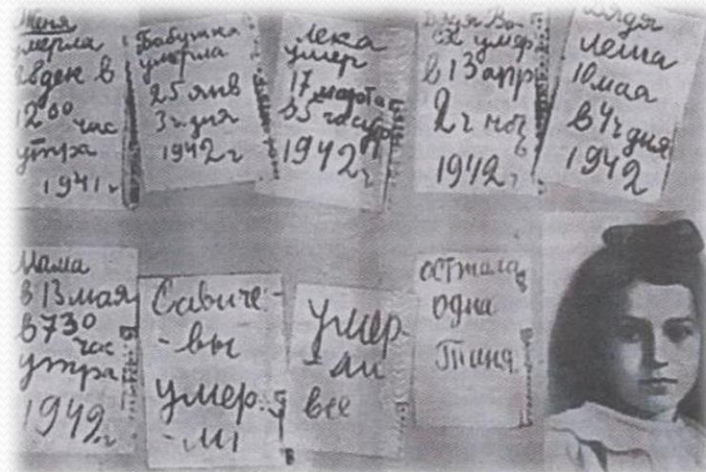 Женя
умерла
28 ден в
12 00 час
утра
1941 г
Бабушка
умерла
25 янв
3 ч дня
1942 г
Лека
умер
17 марта
в 5 час утр
1942 г
дядя Ва
ся умер
в 13 апр
2 ч ноч
1942 г
дядя
Леша
10 мая
в 4 ч дня
1942
Мама
в 13 мая
в 7 30
час
утра
1942 г
Савиче-
-вы
умер-
-ли
умер-
-ли
все
осталас
одна
Таня